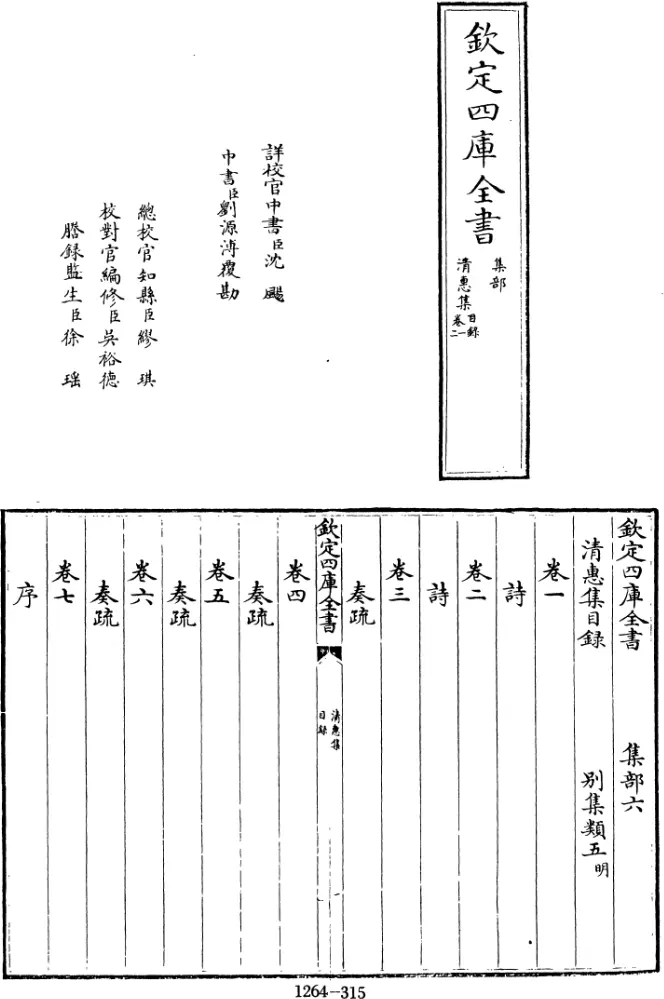 欽定四庫全書
集部
清惠集
目錄
卷一二
詳校官中書臣沈颺
中書臣劉源溥覆勘
總校官知縣臣繆琪
校對官編修臣吳裕德
謄錄監生臣徐瑶
欽定四庫全書 集部六
清惠集目録 别集類五明
卷一
詩
卷二
詩
卷三
奏疏
欽定四庫全書
清惠集
目録
卷四
奏疏
卷五
奏疏
卷六
奏疏
卷七
序
1264-315